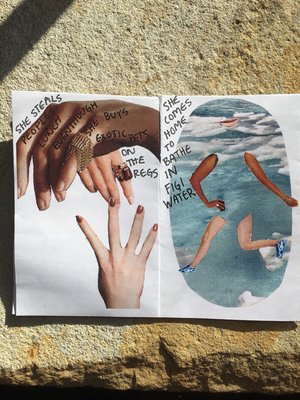 SHE STEALS
PEOPLES
EVENTHOUGH
SHE BUYS
EXOTIC PETS
ON
THE
REGS
SHE
COMES
TO
HOME
TO
BATHE
IN
FIGI
WATER